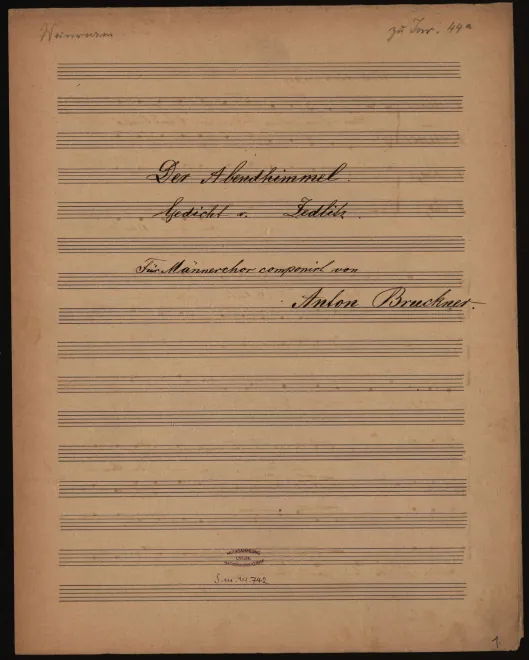 zu Inv. 44a
Der Abendhimmel.
Gedicht v. Zedlitz.
Für Männerchor componirt von
Anton Bruckner.
MUSIKSAMMLUNG
S.m. 24.742
1.